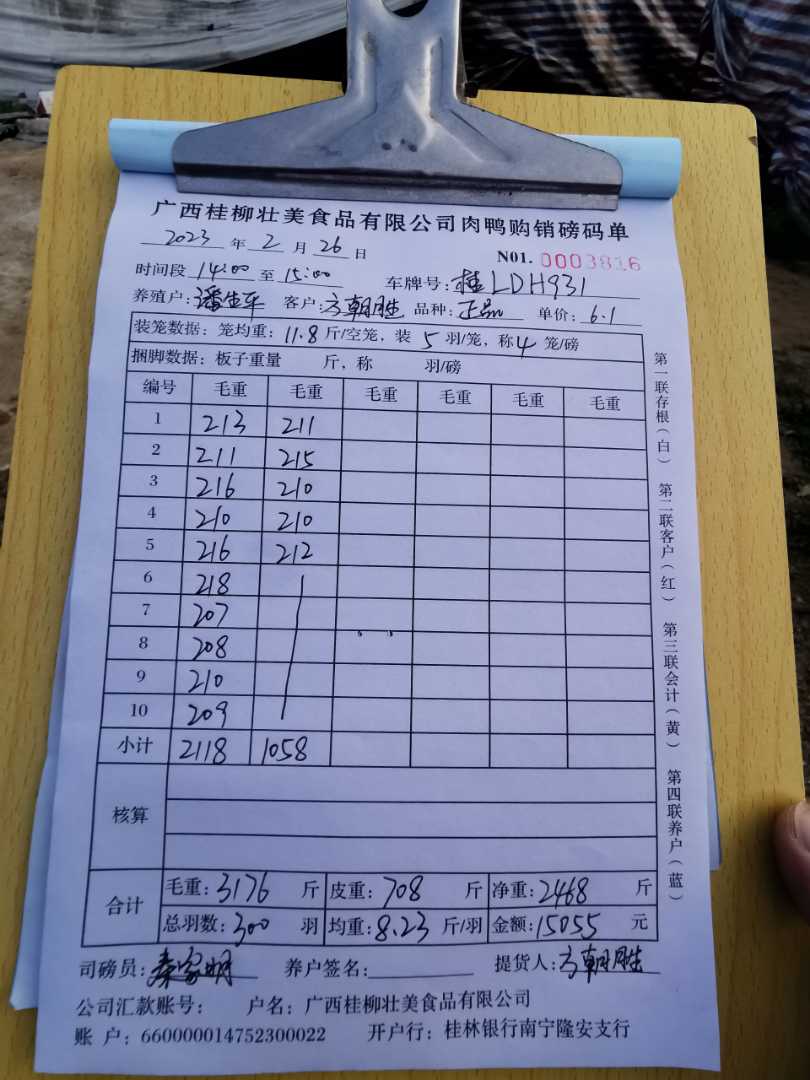 广西桂柳壮美食品有限公司肉鸭购销磅码单
2023 年 2 月 26 日 N01. 0003816
时间段 14:00 至 15:00 车牌号: 桂LDH931
养殖户: 客户: 方朝胜 品种: 正品 单价: 6.1
装笼数据: 笼均重: 11.8 斤/空笼, 装 5 羽/笼, 称 4 笼/磅
捆脚数据: 板子重量 斤, 称 羽/磅
编号 毛重 毛重 毛重 毛重 毛重 毛重
1 213 211
2 211 215
3 216 210
4 210 210
5 216 212
6 218
7 207
8 208
9 210
10 209
小计 2118 1058
核算
合计 毛重: 3176 斤 皮重: 708 斤 净重: 2468 斤
总羽数: 300 羽 均重: 8.23 斤/羽 金额: 15055 元
司磅员: 秦家明 养户签名: 提货人: 方朝胜
公司汇款账号: 户名: 广西桂柳壮美食品有限公司
账 户: 660000014752300022 开户行: 桂林银行南宁隆安支行
第一联存根(白) 第二联客户(红) 第三联会计(黄) 第四联养户(蓝)